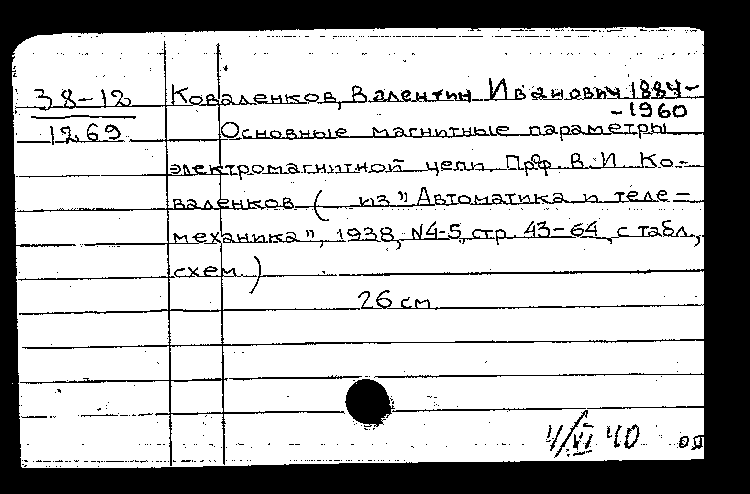 38-12 Коваленков, Валентин Иванович 1884-
-1960
1269 Основные магнитные параметры
электромагнитной цепи. Проф. В. И. Ко-
валенков ( из "Автоматика и теле-
механика", 1938, N4-5, стр. 43-64, с табл.,
схем.)
26 см
4/XI 40